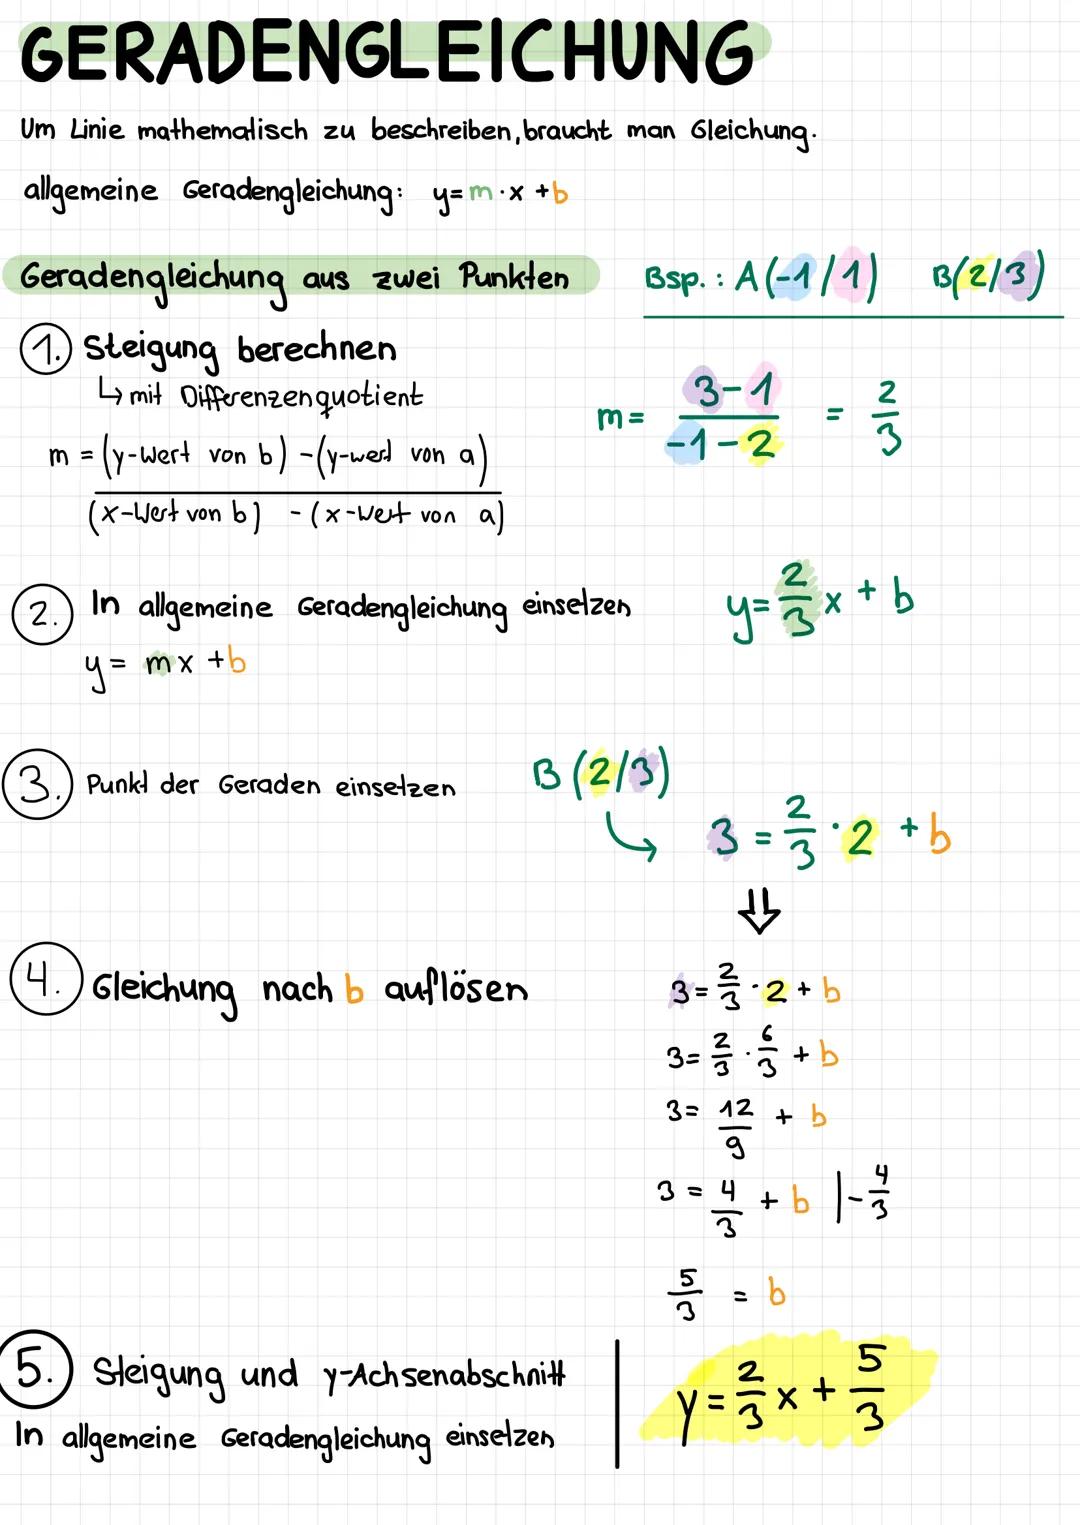 GERADENGLEICHUNG
Um Linie mathematisch zu beschreiben, braucht man Gleichung.
allgemeine Geradengleichung: y=m·x+b
Geradengleichung aus zwei Punkten
Bsp.: A(-1/1) B(2/3)
1. Steigung berechnen
↳ mit Differenzenquotient
m = (y-Wert von b) - (y-wert von a)
(x-Wert von b) - (x-Wert von a)
m = 3-1 / -1-2 = 2/3
2. In allgemeine Geradengleichung einsetzen
y = mx + b
y = 2/3 x + b
3. Punkt der Geraden einsetzen
B (2/3)
3 = 2/3 · 2 + b
4. Gleichung nach b auflösen
3 = 2/3 · 2 + b
3 = 2/3 · 6/3 + b
3 = 12/9 + b
3 = 4/3 + b | - 4/3
5/3 = b
5. Steigung und y-Achsenabschnitt
In allgemeine Geradengleichung einsetzen
y = 2/3 x + 5/3